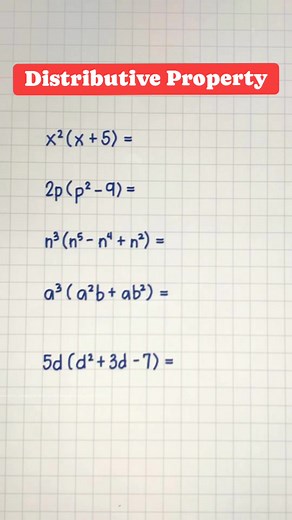 Distributive Property
x²(x+5) =
2p(p²-9) =
n³(n⁵-n⁴+n²) =
a³(a²b+ab²) =
5d(d²+3d-7) =